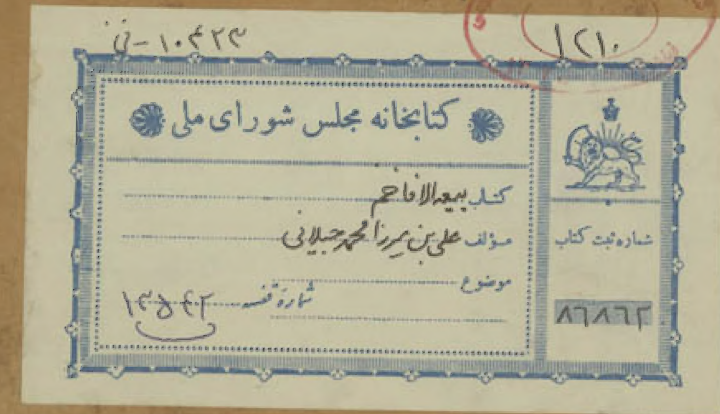 ۱۰۴۲۳ - في
۱۲۱۰
کتابخانه مجلس شورای ملی
کتاب بیعه الافاخم
مؤلف علی بن میرزا محمد جیلانی
موضوع
شماره قفسه ۱۳۵۴۲
شماره ثبت کتاب
۸۶۸۶۲